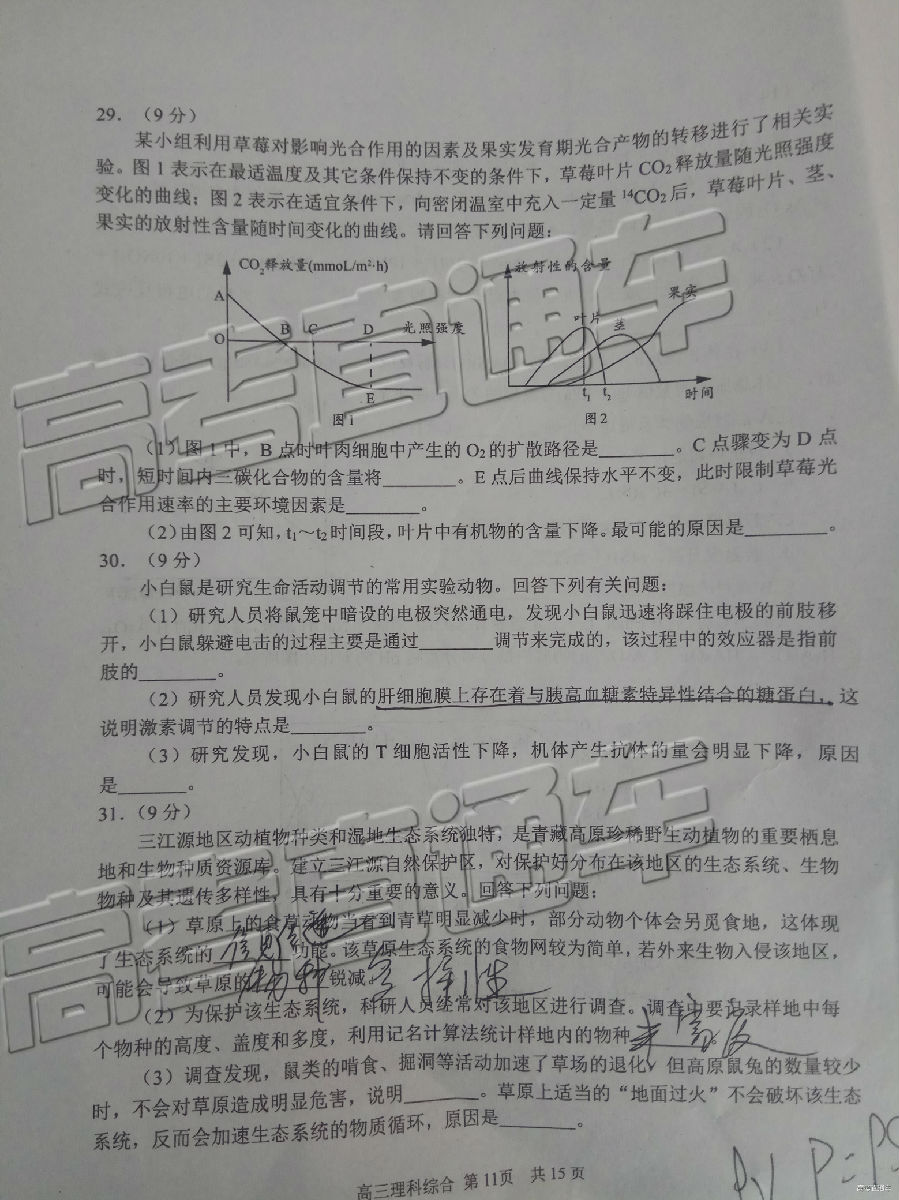 29．（9 分）
某小组利用草莓对影响光合作用的因素及果实发育期光合产物的转移进行了相关实
验。图 1 表示在最适温度及其它条件保持不变的条件下，草莓叶片 CO₂ 释放量随光照强度
变化的曲线；图 2 表示在适宜条件下，向密闭温室中充入一定量 ¹⁴CO₂ 后，草莓叶片、茎、
果实的放射性含量随时间变化的曲线。请回答下列问题：
CO₂释放量(mmoL/m²·h)
A
O
B
C
D
光照强度
E
图1
放射性的含量
果实
叶片
茎
t₁
t₂
时间
图 2
（1）图 1 中，B 点时叶肉细胞中产生的 O₂ 的扩散路径是________。C 点骤变为 D 点
时，短时间内三碳化合物的含量将________。E 点后曲线保持水平不变，此时限制草莓光
合作用速率的主要环境因素是________。
（2）由图 2 可知，t₁～t₂ 时间段，叶片中有机物的含量下降。最可能的原因是________。
30．（9分）
小白鼠是研究生命活动调节的常用实验动物。回答下列有关问题：
（1）研究人员将鼠笼中暗设的电极突然通电，发现小白鼠迅速将踩住电极的前肢移
开，小白鼠躲避电击的过程主要是通过________调节来完成的，该过程中的效应器是指前
肢的________。
（2）研究人员发现小白鼠的肝细胞膜上存在着与胰高血糖素特异性结合的糖蛋白，这
说明激素调节的特点是________。
（3）研究发现，小白鼠的 T 细胞活性下降，机体产生抗体的量会明显下降，原因
是________。
31．（9分）
三江源地区动植物种类和湿地生态系统独特，是青藏高原珍稀野生动植物的重要栖息
地和生物种质资源库。建立三江源自然保护区，对保护好分布在该地区的生态系统、生物
物种及其遗传多样性，具有十分重要的意义。回答下列问题：
（1）草原上的食草动物当看到青草明显减少时，部分动物个体会另觅食地，这体现
了生态系统的 信息传递 功能。该草原生态系统的食物网较为简单，若外来生物入侵该地区，
可能会导致草原的 物种多样性 锐减。
（2）为保护该生态系统，科研人员经常对该地区进行调查。调查中要记录样地中每
个物种的高度、盖度和多度，利用记名计算法统计样地内的物种 丰富度
（3）调查发现，鼠类的啃食、掘洞等活动加速了草场的退化，但高原鼠兔的数量较少
时，不会对草原造成明显危害，说明________。草原上适当的“地面过火”不会破坏该生态
系统，反而会加速生态系统的物质循环，原因是________。
高三理科综合 第 11页 共 15 页
高考直通车
高考直通车